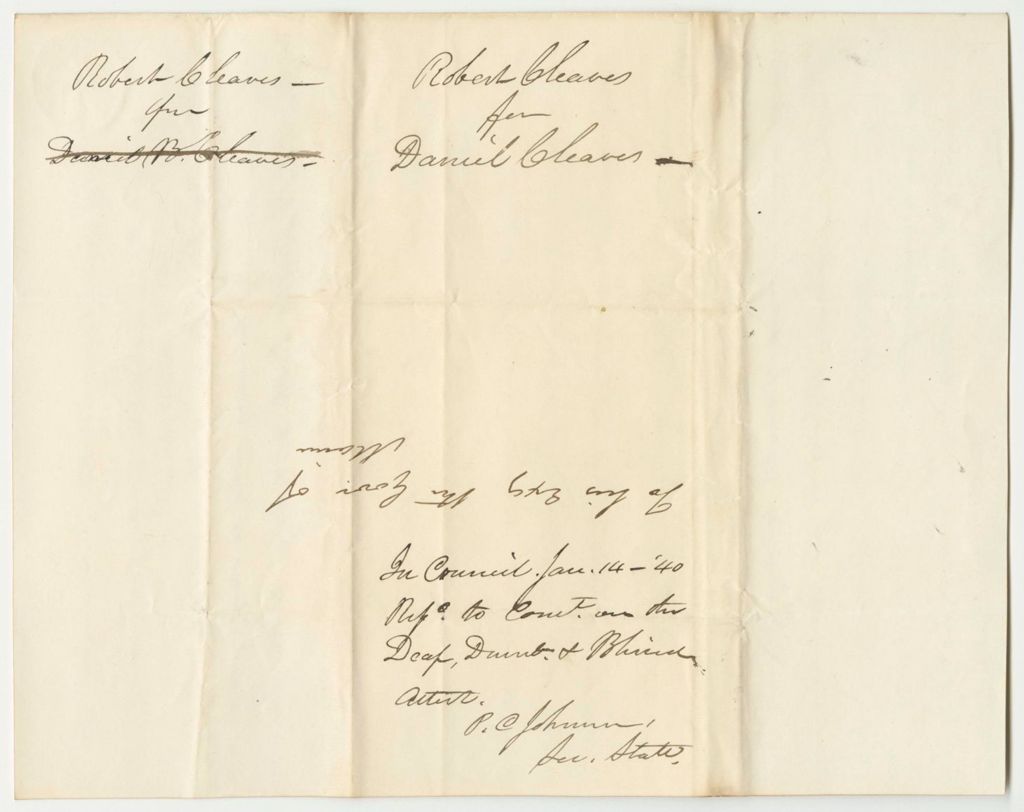 Robert Cleaves —
for
Daniel B. Cleaves —
Robert Cleaves
for
Daniel Cleaves —
To his Exy the Gov. of
Maine
In Council. Jan. 14 – '40
Refd. to Comt. on the
Deaf, Dumb. & Blind.
Attest.
P. C. Johnson,
Sec. State.